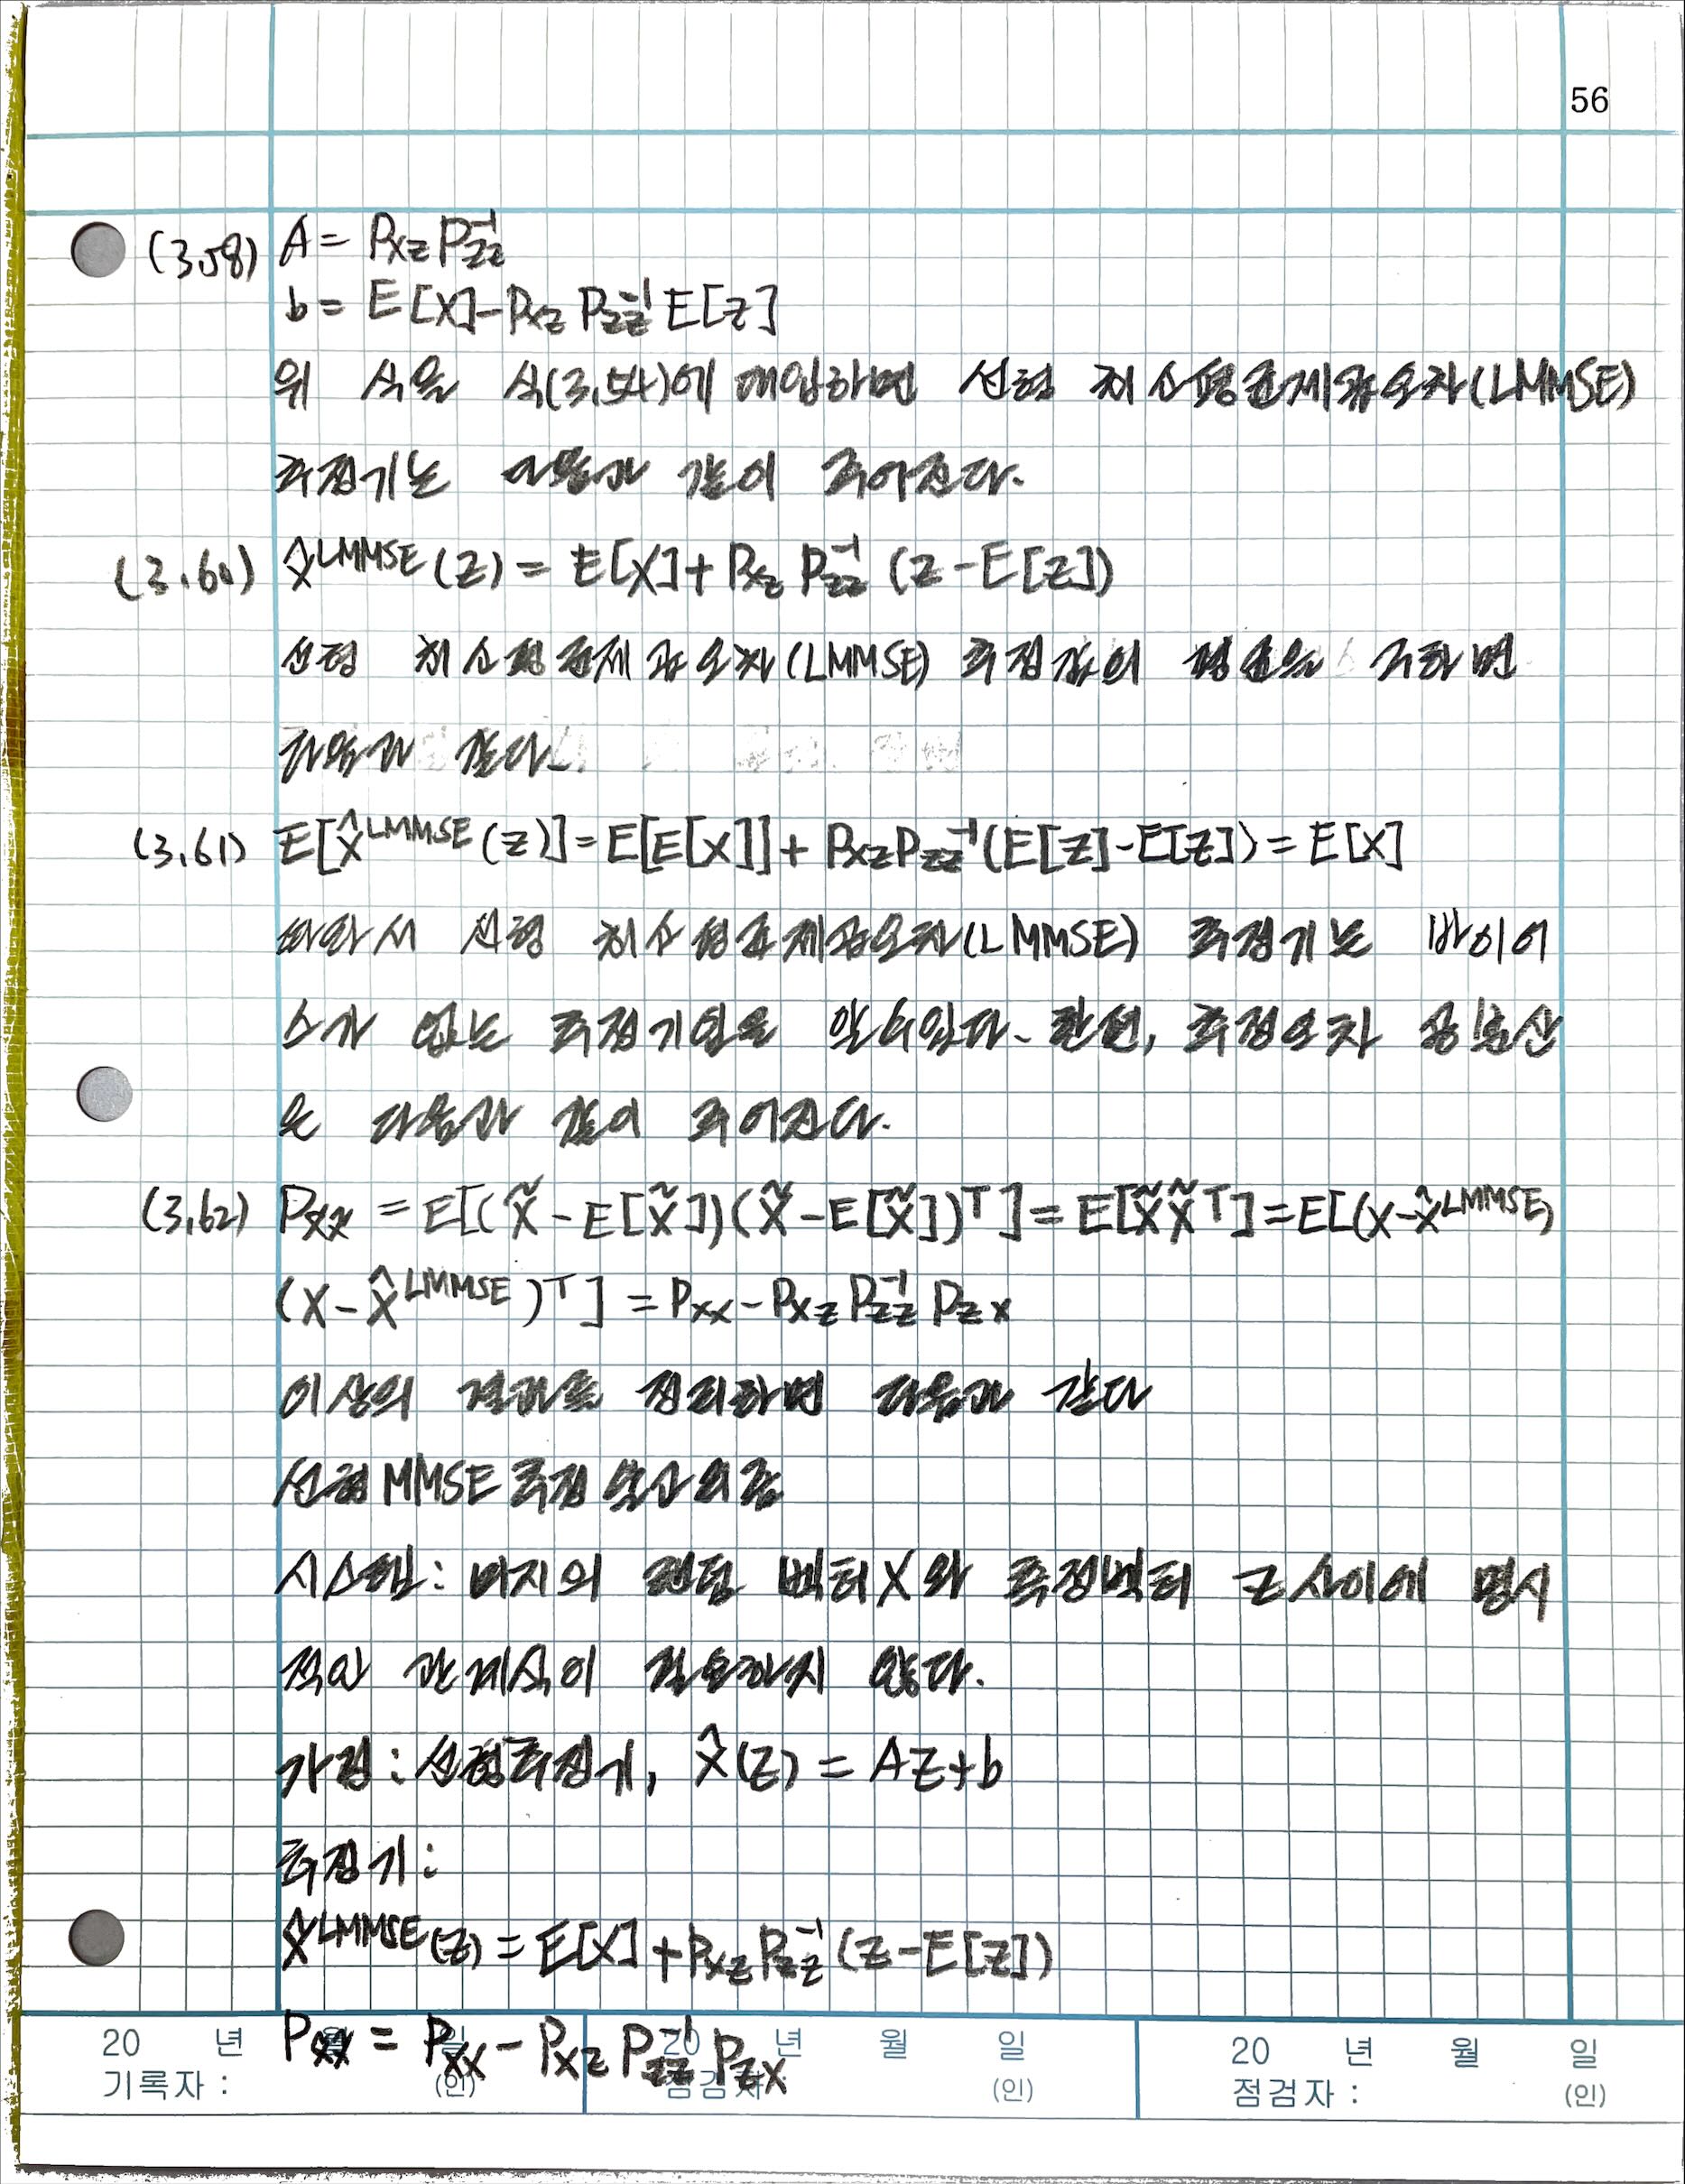 56
(3.58) A = Pxz Pzz⁻¹
b = E[X]-Pxz Pzz⁻¹ E[z]
위 식을 식(3.54)에 대입하면 선형 최소평균제곱오차(LMMSE)
추정기는 다음과 같이 주어진다.
(3.60) x̂ᴸᴹᴹˢᴱ(z) = E[X]+ Pxz Pzz⁻¹ (z-E[z])
선형 최소평균제곱오차(LMMSE) 추정값의 평균을 구하면
다음과 같다.
(3.61) E[x̂ᴸᴹᴹˢᴱ(z)]=E[E[X]]+ Pxz Pzz⁻¹(E[z]-E[z])=E[X]
따라서 선형 최소평균제곱오차(LMMSE) 추정기는 바이어
스가 없는 추정기임을 알 수 있다. 한편, 추정오차 공분산
은 다음과 같이 주어진다.
(3.62) Px̃x̃ = E[(x̃-E[x̃])(x̃-E[x̃])ᵀ]=E[x̃x̃ᵀ]=E[(X-x̂ᴸᴹᴹˢᴱ)
(X-x̂ᴸᴹᴹˢᴱ)ᵀ] = Pxx-Pxz Pzz⁻¹ Pzx
이상의 결과를 정리하면 다음과 같다
선형 MMSE 추정 알고리즘
시스템: 미지의 랜덤 벡터 X와 측정벡터 z 사이에 명시
적인 관계식이 필요하지 않다.
가정: 선형추정기, x̂(z) = Az+b
추정기:
x̂ᴸᴹᴹˢᴱ(z) = E[X]+Pxz Pzz⁻¹ (z-E[z])
Px̃x̃ = Pxx-Pxz Pzz⁻¹ Pzx
20 년 월 일 20 년 월 일 20 년 월 일
기록자 : (인) 점검자 : (인) 점검자 : (인)